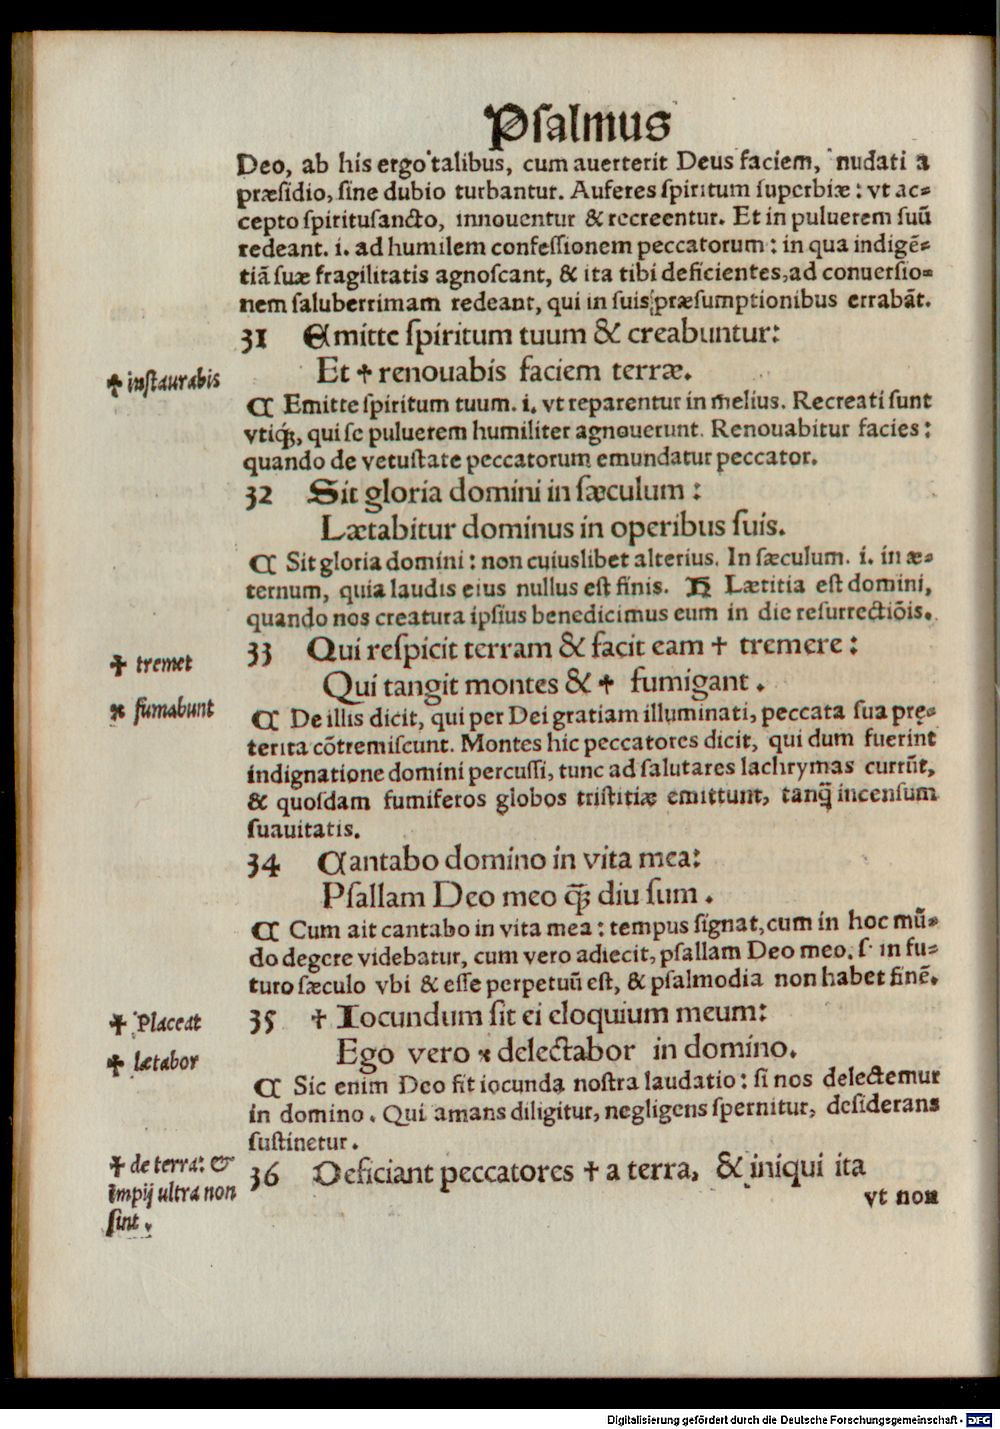 Psalmus
Deo, ab his ergo talibus, cum auerterit Deus faciem, nudati a
præsidio, sine dubio turbantur. Auferes spiritum superbiæ: vt ac-
cepto spiritusancto, innouentur & recreentur. Et in puluerem suū
redeant. i. ad humilem confessionem peccatorum: in qua indigē-
tiā suæ fragilitatis agnoscant, & ita tibi deficientes, ad conuersio-
nem saluberrimam redeant, qui in suis præsumptionibus errabāt.
31 Emitte spiritum tuum & creabuntur:
✝ instaurabis
Et ✝ renouabis faciem terræ.
¶ Emitte spiritum tuum. i. vt reparentur in melius. Recreati sunt
vtiqꝫ, qui se puluerem humiliter agnouerunt. Renouabitur facies:
quando de vetustate peccatorum emundatur peccator.
32 Sit gloria domini in sæculum:
Lætabitur dominus in operibus suis.
¶ Sit gloria domini: non cuiuslibet alterius. In sæculum. i. in æ-
ternum, quia laudis eius nullus est finis. Lætitia est domini,
quando nos creatura ipsius benedicimus eum in die resurrectiōis.
33 Qui respicit terram & facit eam ✝ tremere:
✝ tremet
Qui tangit montes & ✝ fumigant.
fumabunt
¶ De illis dicit, qui per Dei gratiam illuminati, peccata sua prę-
terita cōtremiscunt. Montes hic peccatores dicit, qui dum fuerint
indignatione domini percussi, tunc ad salutares lachrymas currūt,
& quosdam fumiferos globos tristitiæ emittunt, tanq̄ incensum
suauitatis.
34 Cantabo domino in vita mea:
Psallam Deo meo q̄ꝫ diu sum.
¶ Cum ait cantabo in vita mea: tempus signat, cum in hoc mū-
do degere videbatur, cum vero adiecit, psallam Deo meo. s. in fu-
turo sæculo vbi & esse perpetuū est, & psalmodia non habet finē.
35 ✝ Iocundum sit ei eloquium meum:
✝ Placeat
Ego vero ✝ delectabor in domino.
✝ lætabor
¶ Sic enim Deo fit iocunda nostra laudatio: si nos delectemur
in domino. Qui amans diligitur, negligens spernitur, desiderans
sustinetur.
36 Deficiant peccatores ✝ a terra, & iniqui ita
✝ de terra: &
impij ultra non
sint.
vt non
Digitalisierung gefördert durch die Deutsche Forschungsgemeinschaft - DFG